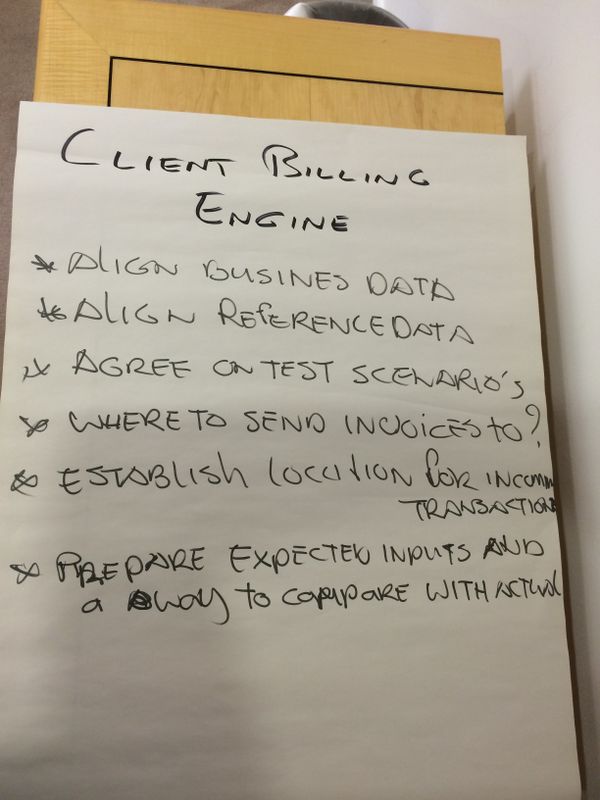 CLIENT BILLING
ENGINE
* ALIGN BUSINES DATA
* ALIGN REFERENCE DATA
* AGREE ON TEST SCENARIO'S
* WHERE TO SEND INVOICES TO?
* ESTABLISH LOCATION FOR INCOMM
TRANSACTION
* PREPARE EXPECTED INPUTS AND
a way to COMPARE WITH ACTUAL